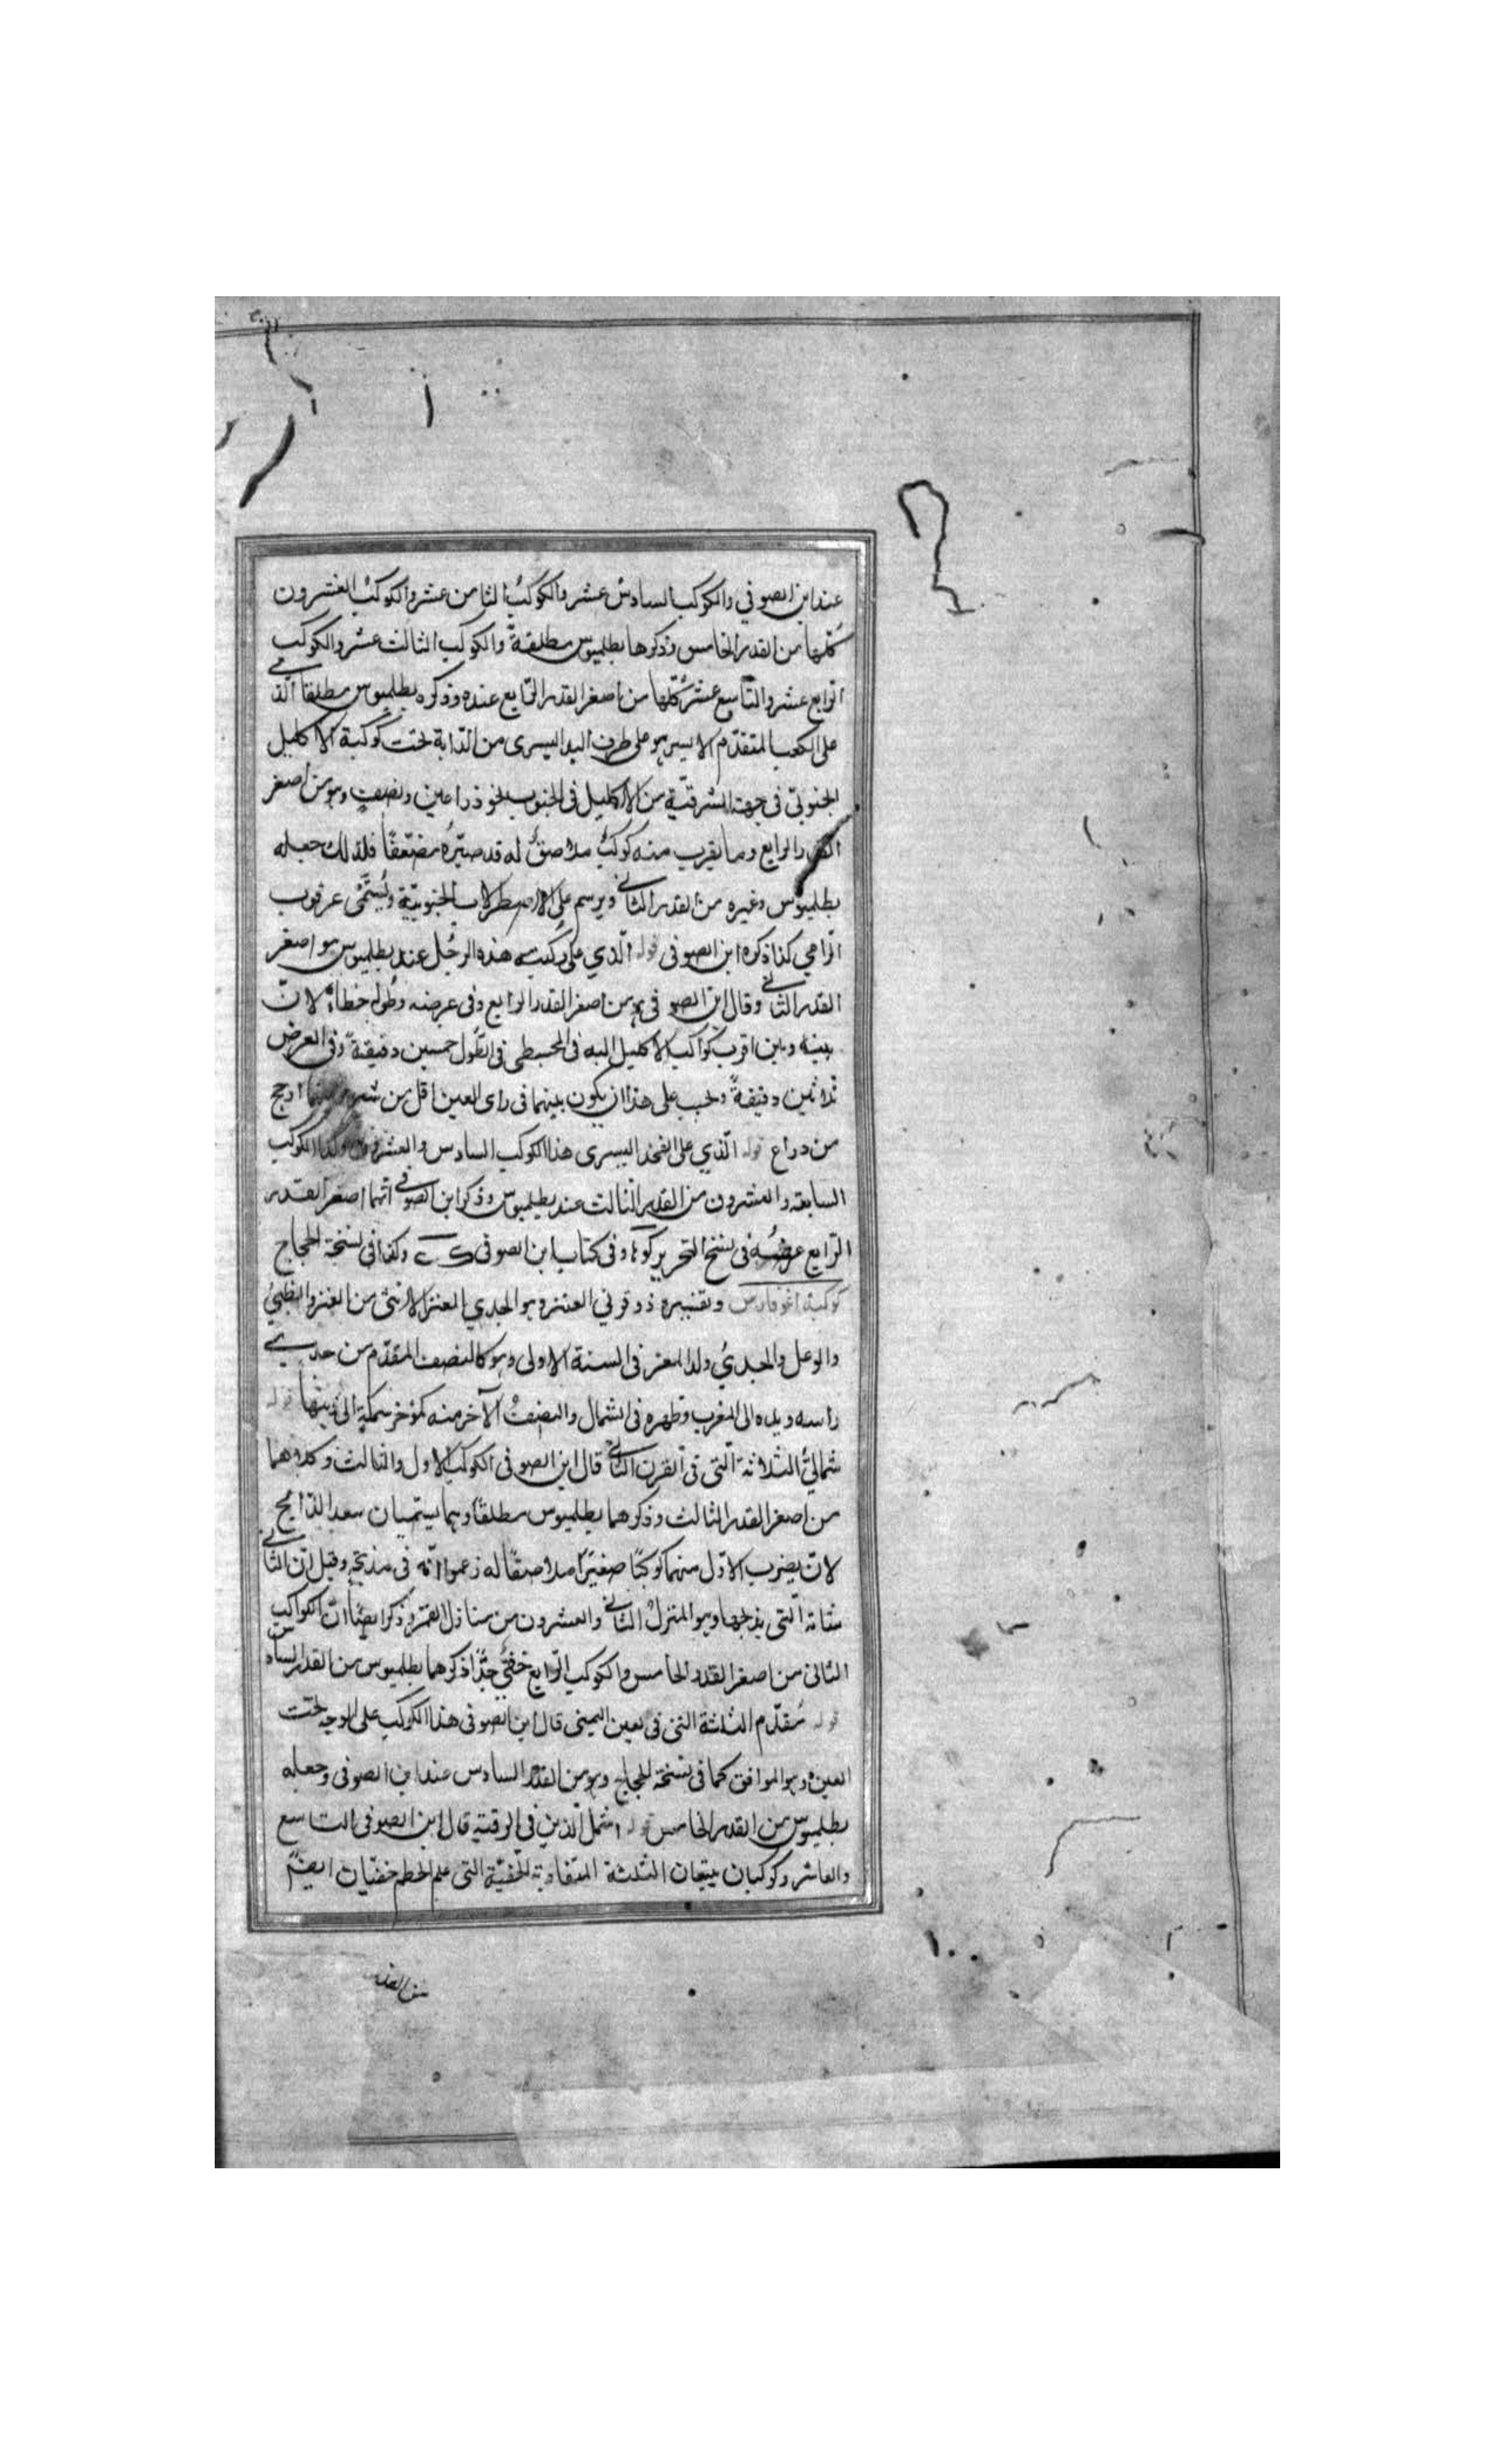 عند ابن الصوفي والكوكب السادس عشر والكوكب الثامن عشر والكوكب العشرون
كلها من القدر الخامس وذكرها بطلميوس مطلقة والكوكب الثالث عشر والكوكب
الرابع عشر والتاسع عشر كلها من اصغر القدر الرابع عنده وذكره بطلميوس مطلقا الذي
على الكعب المتقدم الايسر هو على طرف اليد اليسرى من الدابة تحت كوكبة الاكليل
الجنوبي في جهة المشرقية من الاكليل في الجنوب بنحو ذراعين ونصف وهو من اصغر
القدر الرابع وما يقرب منه كوكب ملاصق له قد صيره مضعفا فلذلك جعله
بطلميوس وغيره من القدر الثاني ويرسم على الاصطرلاب الجنوبية ويسمى عرقوب
الرامي كذا ذكره ابن الصوفي قوله الذي على ركبة هذه الرجل عند بطلميوس هو اصغر
القدر الثاني وقال ابن الصوفي هو من اصغر القدر الرابع وفي عرضه وطوله خطاء لان
بينه وبين اقرب كواكب الاكليل اليه في المجسطي في الطول خمسين دقيقة وفي العرض
ثلاثين دقيقة ويجب على هذا ان يكون بينهما في راى العين اقل من شبر وبينهما ارجح
من ذراع قوله الذي على الفخذ اليسرى هذا الكوكب السادس والعشرون وكذا الكوكب
السابعة والعشرون من القدر الثالث عند بطلميوس وذكر ابن الصوفي انهما اصغر القدر
الرابع عرضه في نسخ التحرير وفي كتاب ابن الصوفي وكذا في نسخة الحجاج
كوكبة وتفسيره ذو قرني العنز وهو الجدي العنز الانثى من المعز والظبي
والوعل والجدي ولد المعز في السنة الاولى وهو كالنصف المقدم من جدي
راسه ويده الى المغرب وظهره في الشمال والنصف الآخر منه كمؤخر سمكة الى ذنبها قوله
شمالي الثلاثة التي في القرن الثاني قال ابن الصوفي الكوكب الاول والثالث وكلاهما
من اصغر القدر الثالث وذكرهما بطلميوس مطلقا وهما يسميان سعد الذابح
لان بقرب الاول منهما كوكبا صغيرا ملاصقا له زعموا انه في مذبحه وقيل ان الثاني
شاته التي يذبحها وهو المنزل الثاني والعشرون من منازل القمر وذكر ايضا ان الكواكب
الثاني من اصغر القدر الخامس والكوكب الرابع خفي جدا ذكرهما بطلميوس من القدر السادس
قوله مقدم الثلثة التي في العين اليمنى قال ابن الصوفي هذا الكوكب على الوجه تحت
العين وهو الموافق كما في نسخة الحجاج وهو من القدر السادس عند ابن الصوفي وجعله
بطلميوس من القدر الخامس قوله اشمل الذين في الرقبة قال ابن الصوفي التاسع
والعاشر وكوكبان يتبعان الثلثة المتقاربة الخفية التي على الخطم خفيان ايضا
من القدر